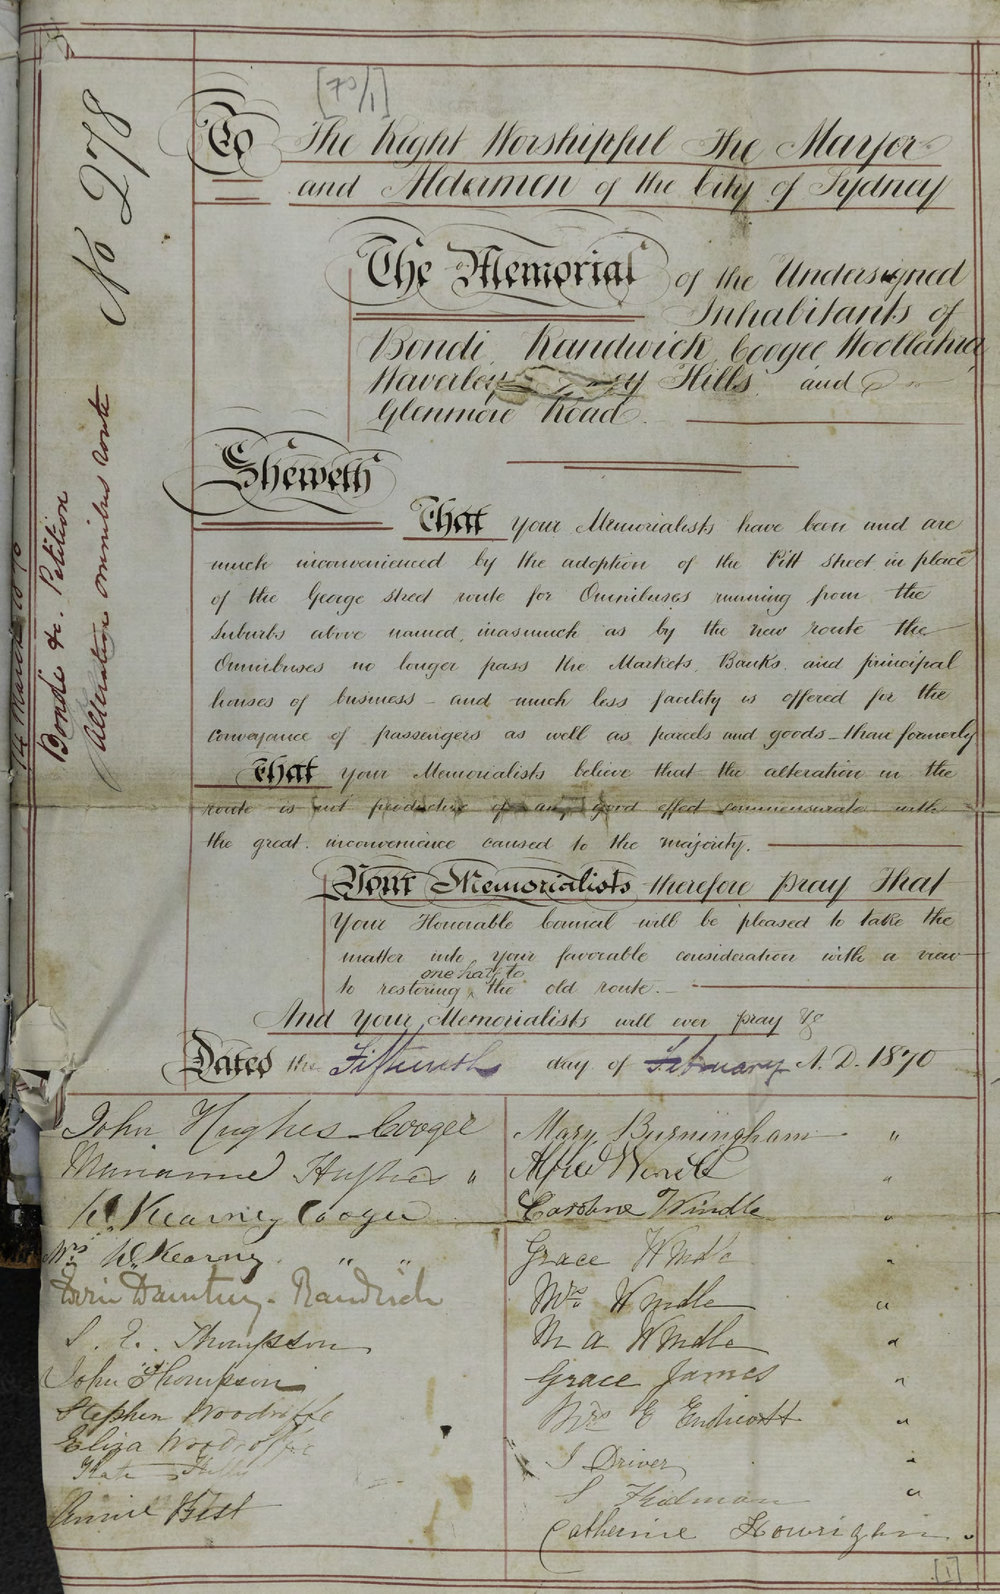 [73/1]
No 278
14 March 1870
Bondi &c. Petition
Alteration omnibus route
To The Right Worshipful The Mayor
and Aldermen of the City of Sydney
The Memorial of the Undersigned
Inhabitants of
Bondi, Randwick, Coogee Woollahra,
Waverley Hills and
Glenmore Road.
Sheweth
That your Memorialists have been and are
much inconvenienced by the adoption of the Pitt street in place
of the George street route for Omnibuses running from the
Suburbs above named, inasmuch as by the new route the
Omnibuses no longer pass the Markets, Banks, and principal
houses of business – and much less facility is offered for the
conveyance of passengers as well as parcels and goods – than formerly
That your Memorialists believe that the alteration in the
route is not productive of any good effect commensurate with
the great inconvenience caused to the majority.
Your Memorialists therefore pray That
Your Honorable Council will be pleased to take the
matter into your favorable consideration with a view
one half to
to restoring ^ the old route. –
And your Memorialists will ever pray &c
Dated the Fifteenth day of February A.D. 1870
John Hughes Coogee
Marianne Hughes "
W. Kearney Coogee
Mrs W. Kearny " "
Randwick
S. E. Thompson
John Thompson
Stephen Woodriffe
Eliza Woodroffe
Kate
Annie West
Mary Burningham "
Alfred Windle "
Caroline Windle "
Grace Windle "
Mrs Windle "
M A Windle "
Grace James "
Mrs E Endicott "
J Driver "
S Kidman "
Catherine Hourigan "
[1]